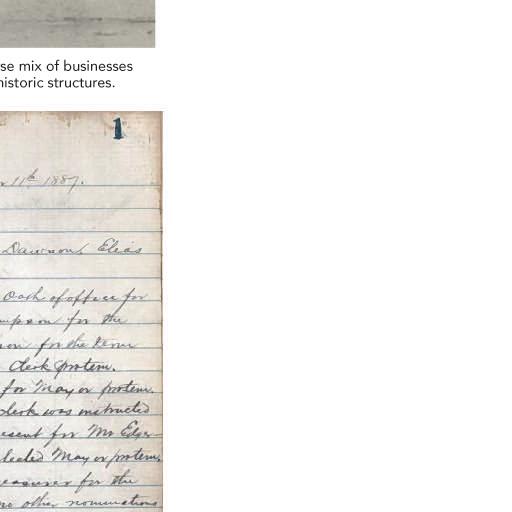 se mix of businesses
historic structures.
1
11th 1887.
Dawson, Elias
Oath of office for
mpson for the
son for the Term
Clerk protem.
for Mayor protem.
clerk was instructed
esent for Mr Edger
lected Mayor protem.
easurer for the
no other nominations